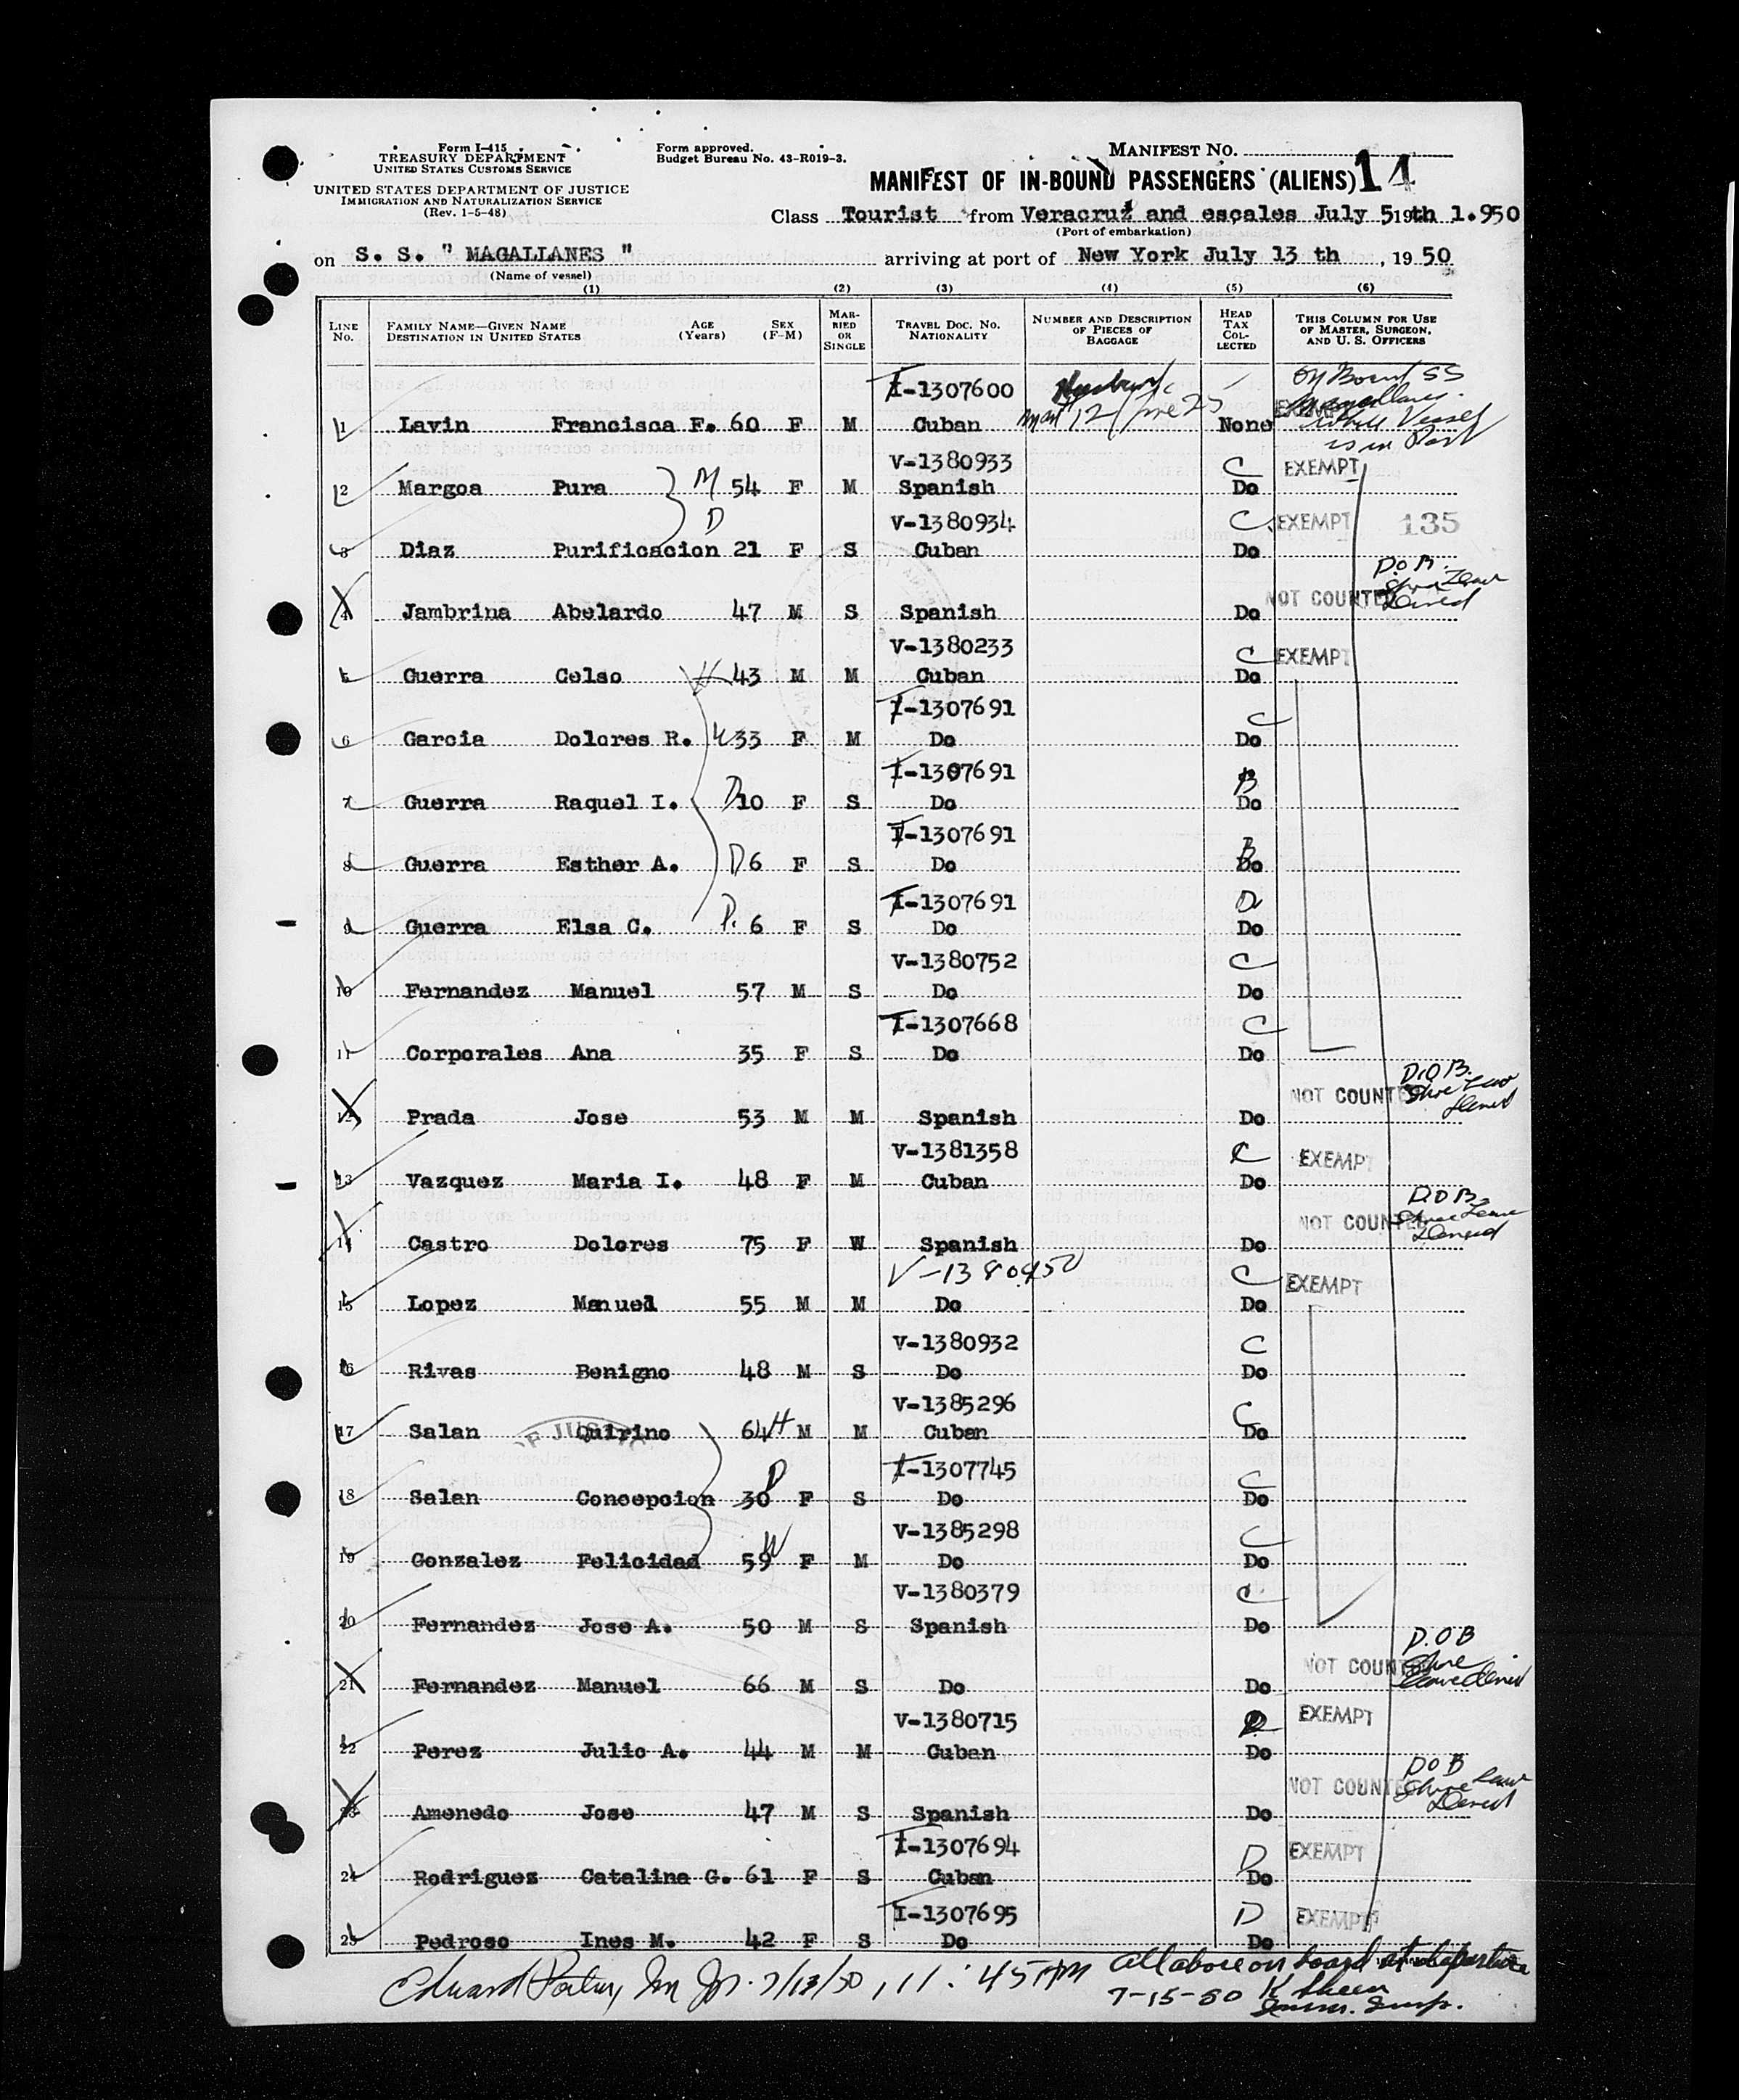 Form I-415
TREASURY DEPARTMENT
UNITED STATES CUSTOMS SERVICE
UNITED STATES DEPARTMENT OF JUSTICE
IMMIGRATION AND NATURALIZATION SERVICE
(Rev. 1-5-48)
Form approved.
Budget Bureau No. 43-R019-3.
MANIFEST NO.
14
MANIFEST OF IN-BOUND PASSENGERS (ALIENS)
Class Tourist from Veracruz and escales July 519th 1.950
(Port of embarkation)
on S. S. " MAGALLANES " arriving at port of New York July 13 th , 19 50
(Name of vessel)
(1) (2) (3) (4) (5) (6)
LINE No. FAMILY NAME—GIVEN NAME DESTINATION IN UNITED STATES AGE (Years) SEX (F-M) MARRIED OR SINGLE TRAVEL DOC. NO. NATIONALITY NUMBER AND DESCRIPTION OF PIECES OF BAGGAGE HEAD TAX COLLECTED THIS COLUMN FOR USE OF MASTER, SURGEON, AND U. S. OFFICERS
I-1307600 On Board SS
1 Lavin Francisca F. 60 F M Cuban None while Vessel is in Port
V-1380933 C EXEMPT
2 Margoa Pura M 54 F M Spanish Do
D V-1380934 C EXEMPT 135
3 Diaz Purificacion 21 F S Cuban Do
NOT COUNTED D.O.B. Shore Leave Denied
4 Jambrina Abelardo 47 M S Spanish Do
V-1380233 C EXEMPT
5 Guerra Celso H 43 M M Cuban Do
I-1307691 C
6 Garcia Dolores R. W 33 F M Do Do
I-1307691 B
7 Guerra Raquel I. D 10 F S Do Do
I-1307691 B
8 Guerra Esther A. D 6 F S Do Do
I-1307691 D
9 Guerra Elsa C. D. 6 F S Do Do
V-1380752 C
10 Fernandez Manuel 57 M S Do Do
I-1307668 C
11 Corporales Ana 35 F S Do Do
NOT COUNTED D.O.B. Shore Leave Denied
12 Prada Jose 53 M M Spanish Do
V-1381358 C EXEMPT
13 Vazquez Maria I. 48 F M Cuban Do
NOT COUNTED D.O.B. Shore Leave Denied
14 Castro Dolores 75 F W Spanish Do
V-1380950 C EXEMPT
15 Lopez Manuel 55 M M Do Do
V-1380932 C
16 Rivas Benigno 48 M S Do Do
V-1385296 C
17 Salan Quirino 64 H M M Cuban Do
OF JUS
I-1307745 C
18 Salan Concepcion 30 D F S Do Do
V-1385298 C
19 Gonzalez Felicidad 59 W F M Do Do
V-1380379 C
20 Fernandez Jose A. 50 M S Spanish Do
NOT COUNTED D.O.B Shore Leave Denied
21 Fernandez Manuel 66 M S Do Do
V-1380715 EXEMPT
22 Perez Julio A. 44 M M Cuban Do
NOT COUNTED DOB Shore Leave Denied
23 Amenedo Jose 47 M S Spanish Do
I-1307694 D EXEMPT
24 Rodriguez Catalina G. 61 F S Cuban Do
I-1307695 D EXEMPT
25 Pedroso Ines M. 42 F S Do Do
Edward 7/13/50, 11:45 PM All above on board at departure
7-15-50 K Sheen
Immr. Insp.